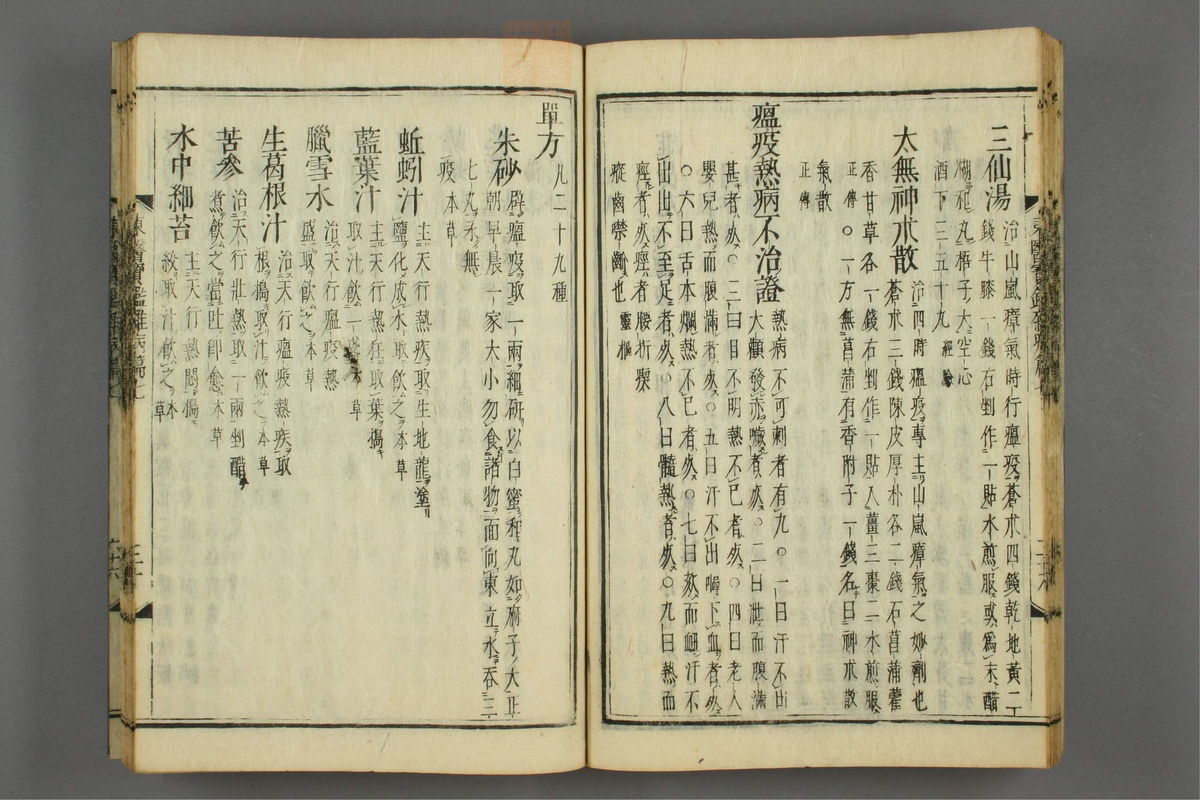 三仙湯 治山嵐瘴氣時行瘟疫蒼朮四錢乾地黃二
錢牛膝一錢右剉作一貼水煎服或爲末醋
糊和丸梧子大空心
酒下三五十丸 經驗
太無神朮散 治四時瘟疫專主山嵐瘴氣之妙劑也
蒼朮三錢陳皮厚朴各二錢石菖蒲藿
香甘草各一錢右剉作一貼入薑三棗二水煎服
正傳〇一方無菖蒲有香附子一錢名曰神朮散
氣散
正傳
瘟疫熱病不治證 熱病不可刺者有九〇一曰汗不出
大顴發赤噦者死〇二曰泄而腹滿
甚者死〇三曰目不明熱不已者死〇四曰老人
嬰兒熱而腹滿者死〇五曰汗不出嘔下血者死
〇六曰舌本爛熱不已者死〇七曰欬而衄汗不
出出不至足者死〇八曰髓熱者死〇九曰熱而
痙者死痙者腰折瘈
瘲齒噤齘也 靈樞
單方 凡二十九種
朱砂 辟瘟疫取一兩細研以白蜜和丸如麻子大正
朝早晨一家大小勿食諸物面向東立水吞三
七丸永無
疫 本草
蚯蚓汁 主天行熱疾取生地龍塗
鹽化成水取飲之 本草
藍葉汁 主天行熱狂取葉搗
取汁飲一盞 本草
臘雪水 治天行瘟疫熱
盛取飲之 本草
生葛根汁 治天行瘟疫熱疾取
根搗取汁飲之 本草
苦參 治天行壯熱取一兩剉醋
煮飲之當吐卽愈 本草
水中細苔 主天行熱悶搗
絞取汁飲之 本草
東醫寶鑑雜病篇七